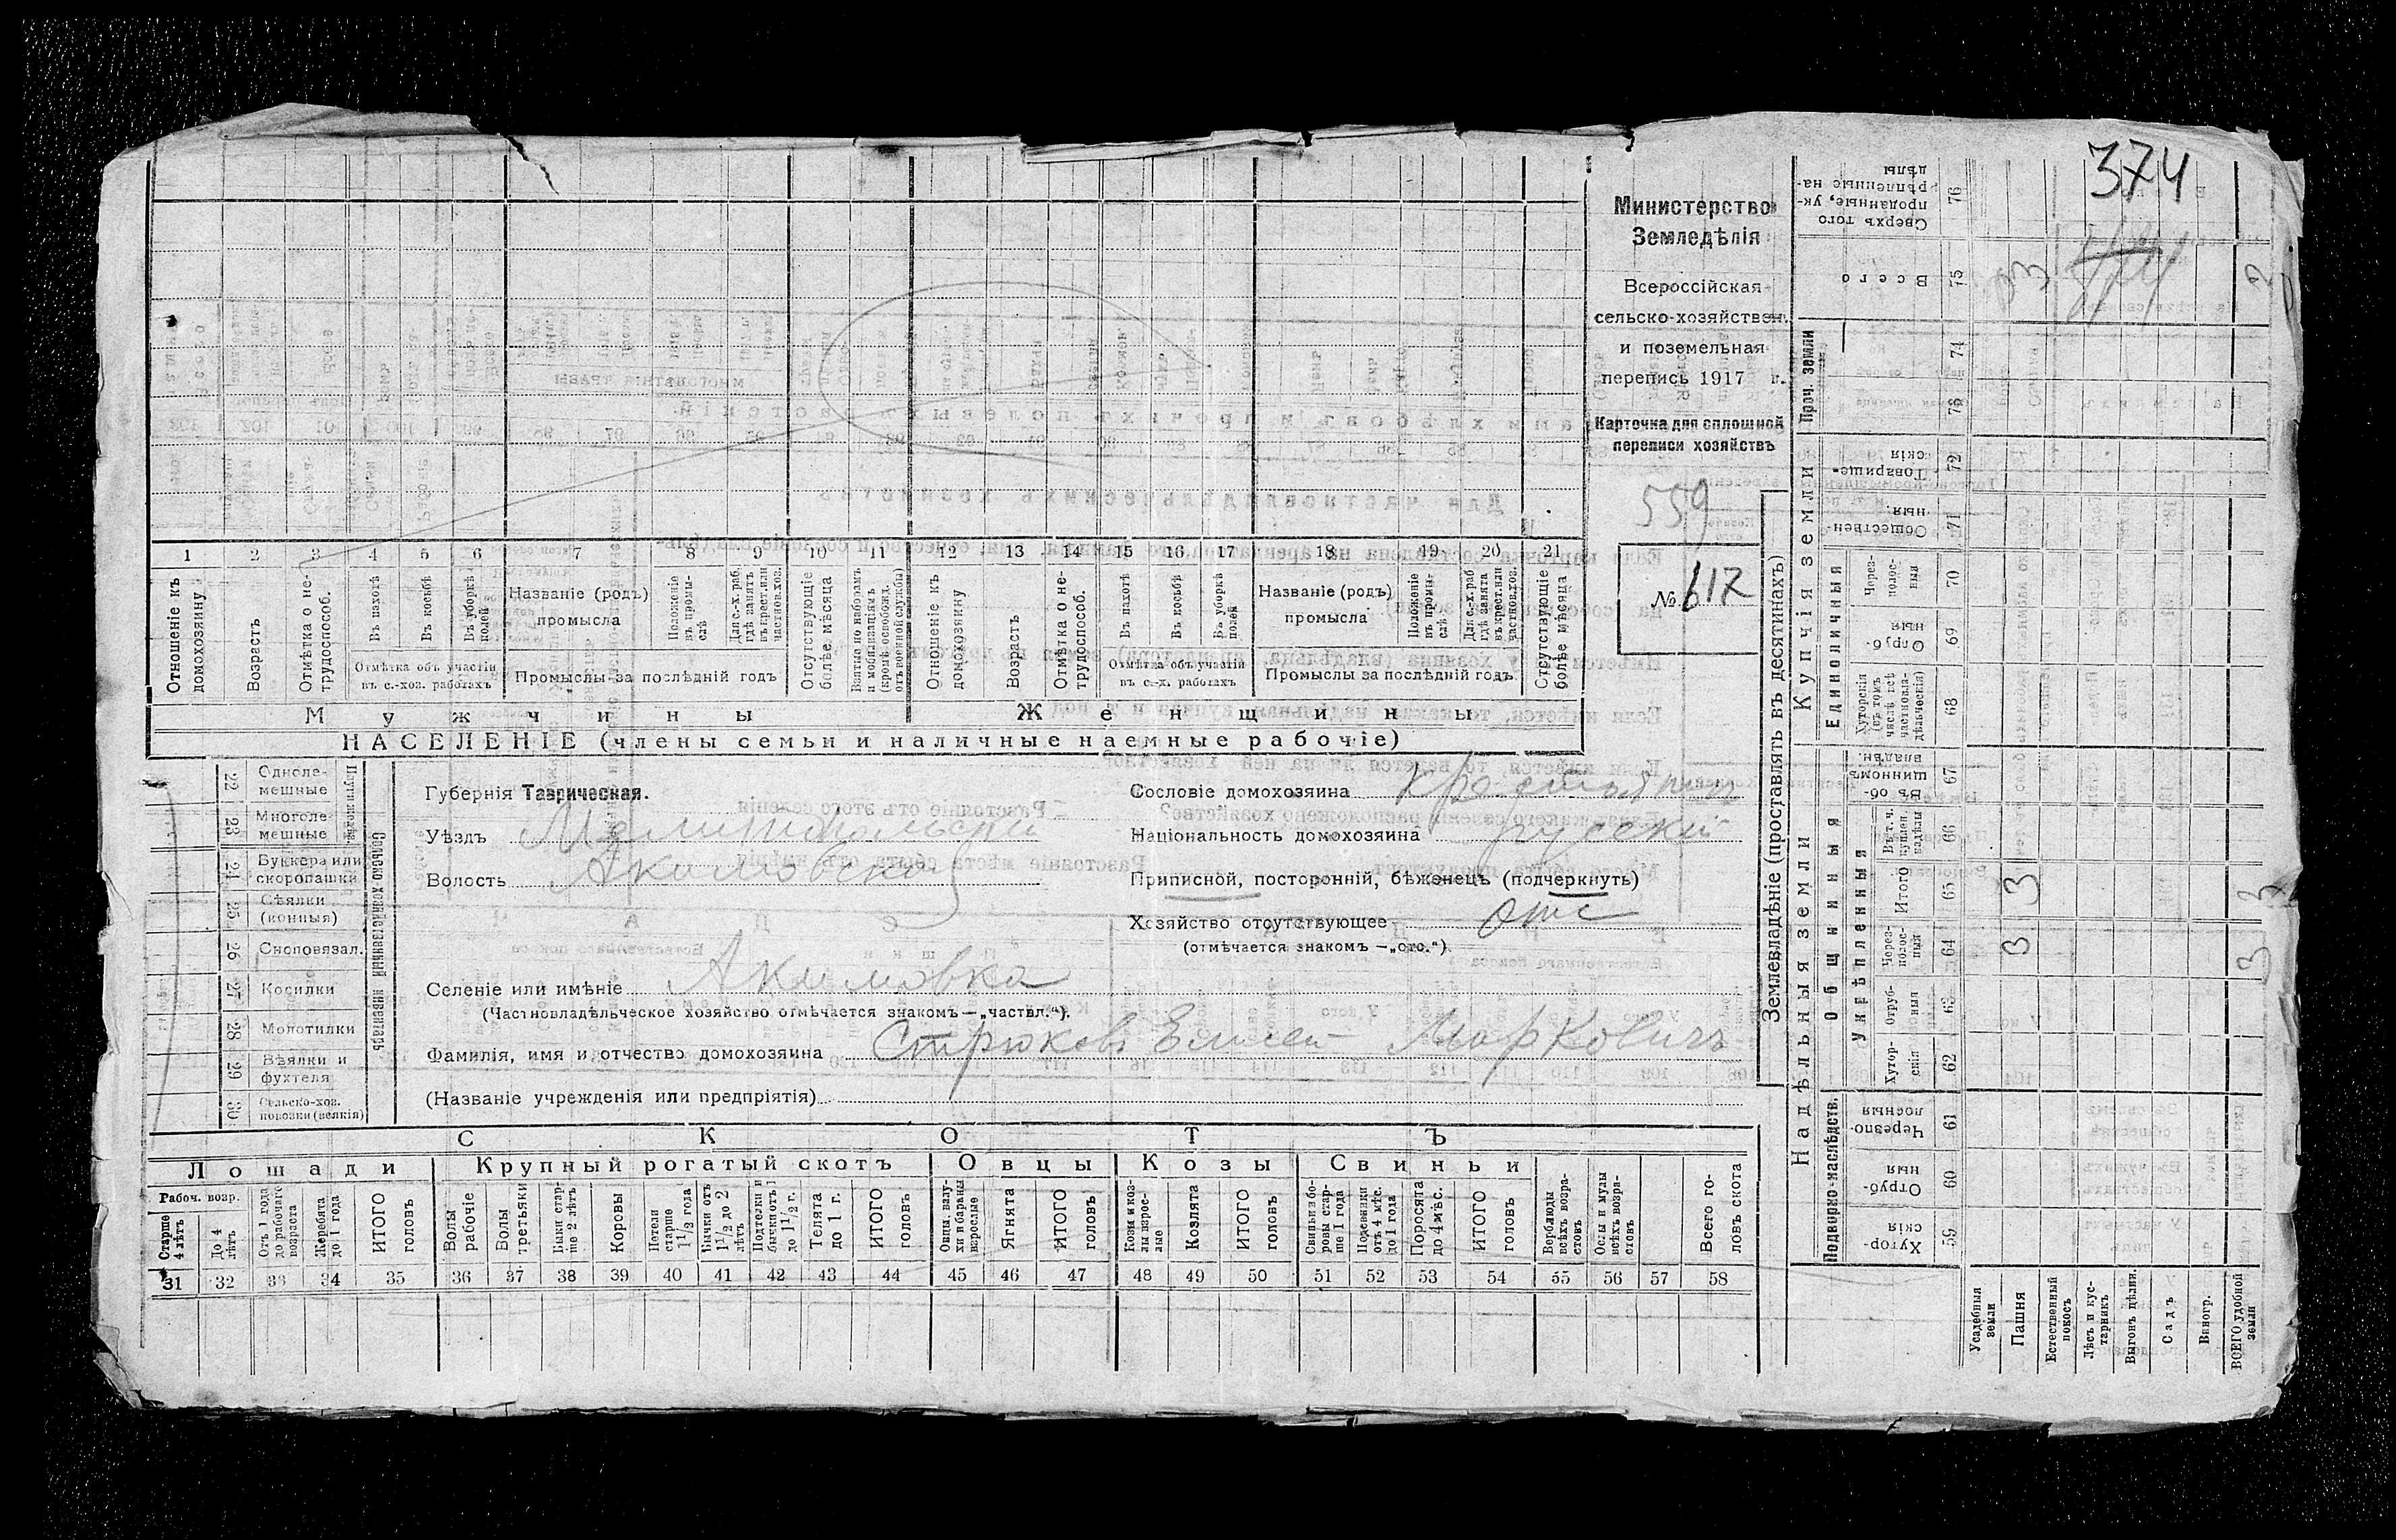 374
Министерство
Земледѣлія
Всероссійская
сельско-хозяйствен.
и поземельная
перепись 1917 г.
Карточка для сплошной
переписи хозяйствъ
559
№ 617
1 2 3 4 5 6 7 8 9 10 11 12 13 14 15 16 17 18 19 20 21
Отношеніе къ домохозяину
Возрастъ
Отмѣтка о нетрудоспособ.
Въ пахотѣ
Въ косьбѣ
Въ уборкѣ полей
Отмѣтка объ участіи въ с.-хоз. работахъ
Названіе (родъ) промысла
Положеніе въ промыслѣ
Для с.-х. раб. гдѣ занятъ въ крест. или частнов. хоз.
Промыслы за послѣдній годъ
Отсутствующіе болѣе мѣсяца
Взятые по наборамъ и мобилизаціямъ (кромѣ освобожд. отъ военной службы)
Отношеніе къ домохозяину
Возрастъ
Отмѣтка о нетрудоспособ.
Въ пахотѣ
Въ косьбѣ
Въ уборкѣ полей
Отмѣтка объ участіи въ с.-х. работахъ
Названіе (родъ) промысла
Положеніе въ промыслѣ
Для с.-х. раб. гдѣ занята въ крест. или частнов. хоз.
Промыслы за послѣдній годъ
Отсутствующіе болѣе мѣсяца
Мужчины Женщины
НАСЕЛЕНІЕ (члены семьи и наличные наемные рабочіе)
Сельско-хозяйственный инвентарь
22 Одноле-мешные
23 Многоле-мешные
24 Буккера или скоропашки
25 Сѣялки (конныя)
26 Сноповязал.
27 Косилки
28 Молотилки
29 Вѣялки и фухтеля
30 Сельско-хоз. повозки
Губернія Таврическая.
Уѣздъ Мелитопольскій
Волость Акимовская
Сословіе домохозяина крестьянин
Національность домохозяина русскій
Приписной, посторонній, бѣженецъ (подчеркнуть)
Хозяйство отсутствующее отс
(отмѣчается знакомъ — „отс.“)
Селеніе или имѣніе Акимовка
(Частновладѣльческое хозяйство отмѣчается знакомъ — „частвл.“).
Фамилія, имя и отчество домохозяина Стрюковъ Елисей Марковичъ
(Названіе учрежденія или предпріятія)
СКОТЪ
Лошади Крупный рогатый скотъ Овцы Козы Свиньи
Рабоч. возр.
Старше 4 лѣтъ
До 4 лѣтъ
Отъ 1 года до рабочаго возраста
Жеребята до 1 года
ИТОГО головъ
Волы рабочіе
Волы третьяки
Быки старше 2 лѣтъ
Коровы
Нетели старше 1½ года
Бычки отъ 1½ до 2 лѣтъ
Подтелки и бычки отъ 1 до 1½ г.
Телята до 1 г.
ИТОГО головъ
Овцы, валухи и бараны взрослые
Ягнята
ИТОГО головъ
Козы и козлы взрослые
Козлята
ИТОГО головъ
Свиньи и боровы старше 1 года
Подсвинки отъ 4 мѣс. до 1 года
Поросята до 4 мѣс.
ИТОГО головъ
Верблюды всѣхъ возрастовъ
Ослы и мулы всѣхъ возрастовъ
Всего головъ скота
31 32 33 34 35 36 37 38 39 40 41 42 43 44 45 46 47 48 49 50 51 52 53 54 55 56 57 58
Землевладѣніе (проставлять въ десятинахъ)
Надѣльныя земли
Купчія земли
Проч. земли
Подворно-наслѣдств.
Общинныя
Укрѣпленныя
Единоличныя
Сверхъ того проданные, укрѣпленные надѣлы 76
Всего 75 3
74
73
Товарищескія 72
Общественныя 71
Черезполосныя 70
Отрубныя 69
Хуторскія (въ томъ числѣ всѣ частновладѣльческія) 68
Въ общинномъ владѣн. 67
Въ т. ч. куплен. надѣлы 66
Итого 65 3 3
Черезполосныя 64 3 3
Отрубныя 63
Хуторскія 62
Черезполосныя 61
Отрубныя 60
Хуторскія 59
Усадебныя земли
Пашня
Естественный покосъ
Лѣсъ и кустарникъ
Выгонъ цѣлин.
Садъ
Виногр.
ВСЕГО удобной земли